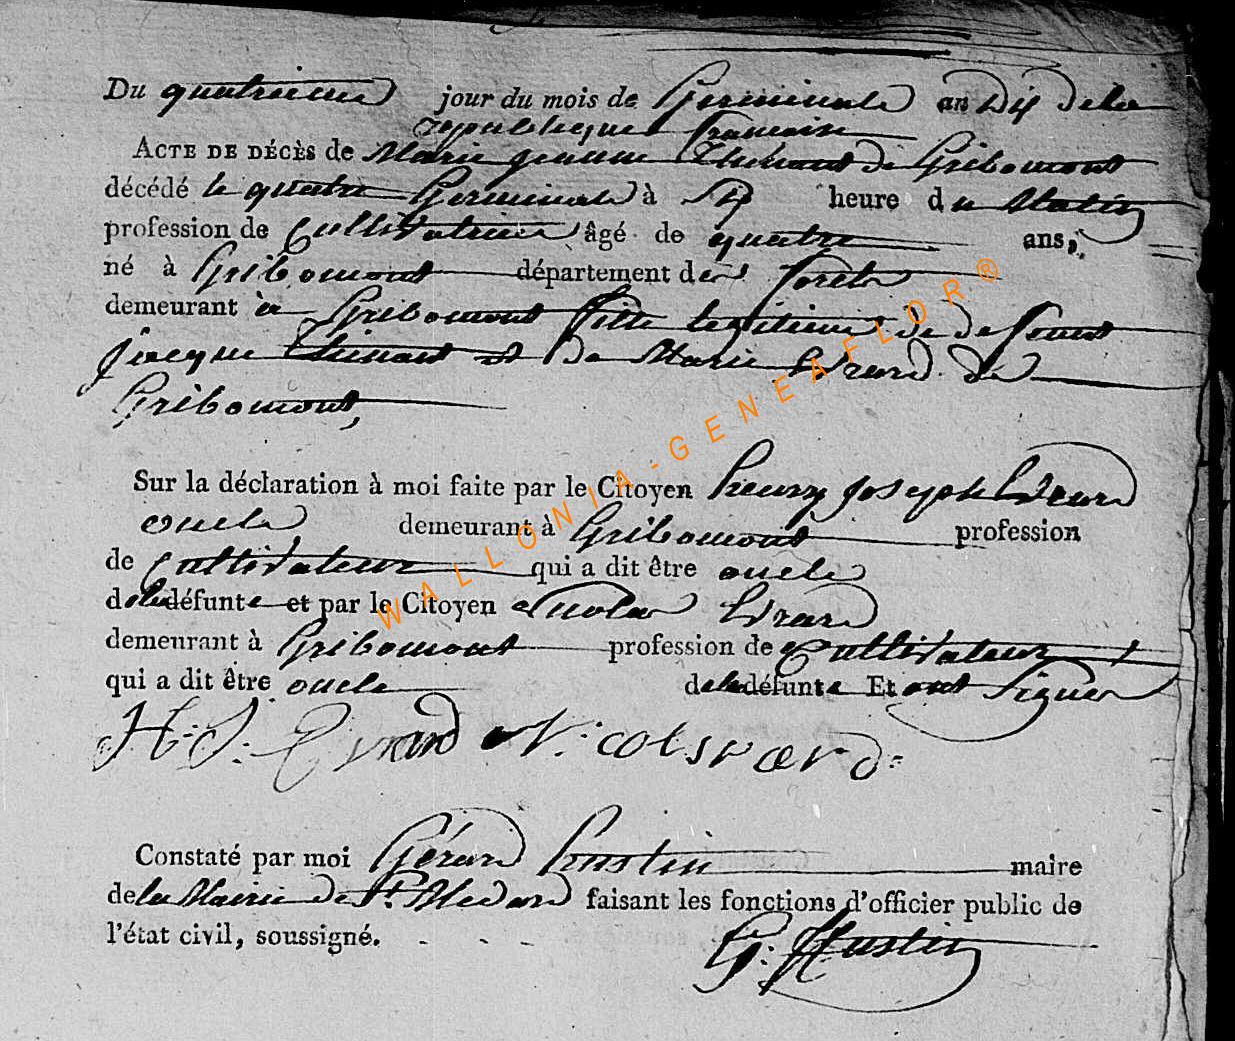 Du quatrieme jour du mois de Germinale an Dix de la
republicque francaise
ACTE DE DÉCÈS de Marie jeanne Thinant de Gribomont
décédé le quatre Germinale à Six heure du Matin
profession de Cultivatrice âgé de quatre ans,
né à Gribomont département des forets
demeurant à Gribomont fille legitime de defeunt
jacque Thinant et de Marie Evrard de
Gribomont,
Sur la déclaration à moi faite par le Citoyen henry joseph Evrard
oncle demeurant à Gribomont profession
de Cultivateur qui a dit être oncle
de la défunte et par le Citoyen Nicolas Evrard
demeurant à Gribomont profession de Cultivateur
qui a dit être oncle de la défunte Et ont Signer
H: J: Evrard Nicolas
Constaté par moi Gérard hustin maire
de la Mairie de St. Medard faisant les fonctions d'officier public de
l'état civil, soussigné.
G: Hustin
WALLONIA-GENEAFLOR®